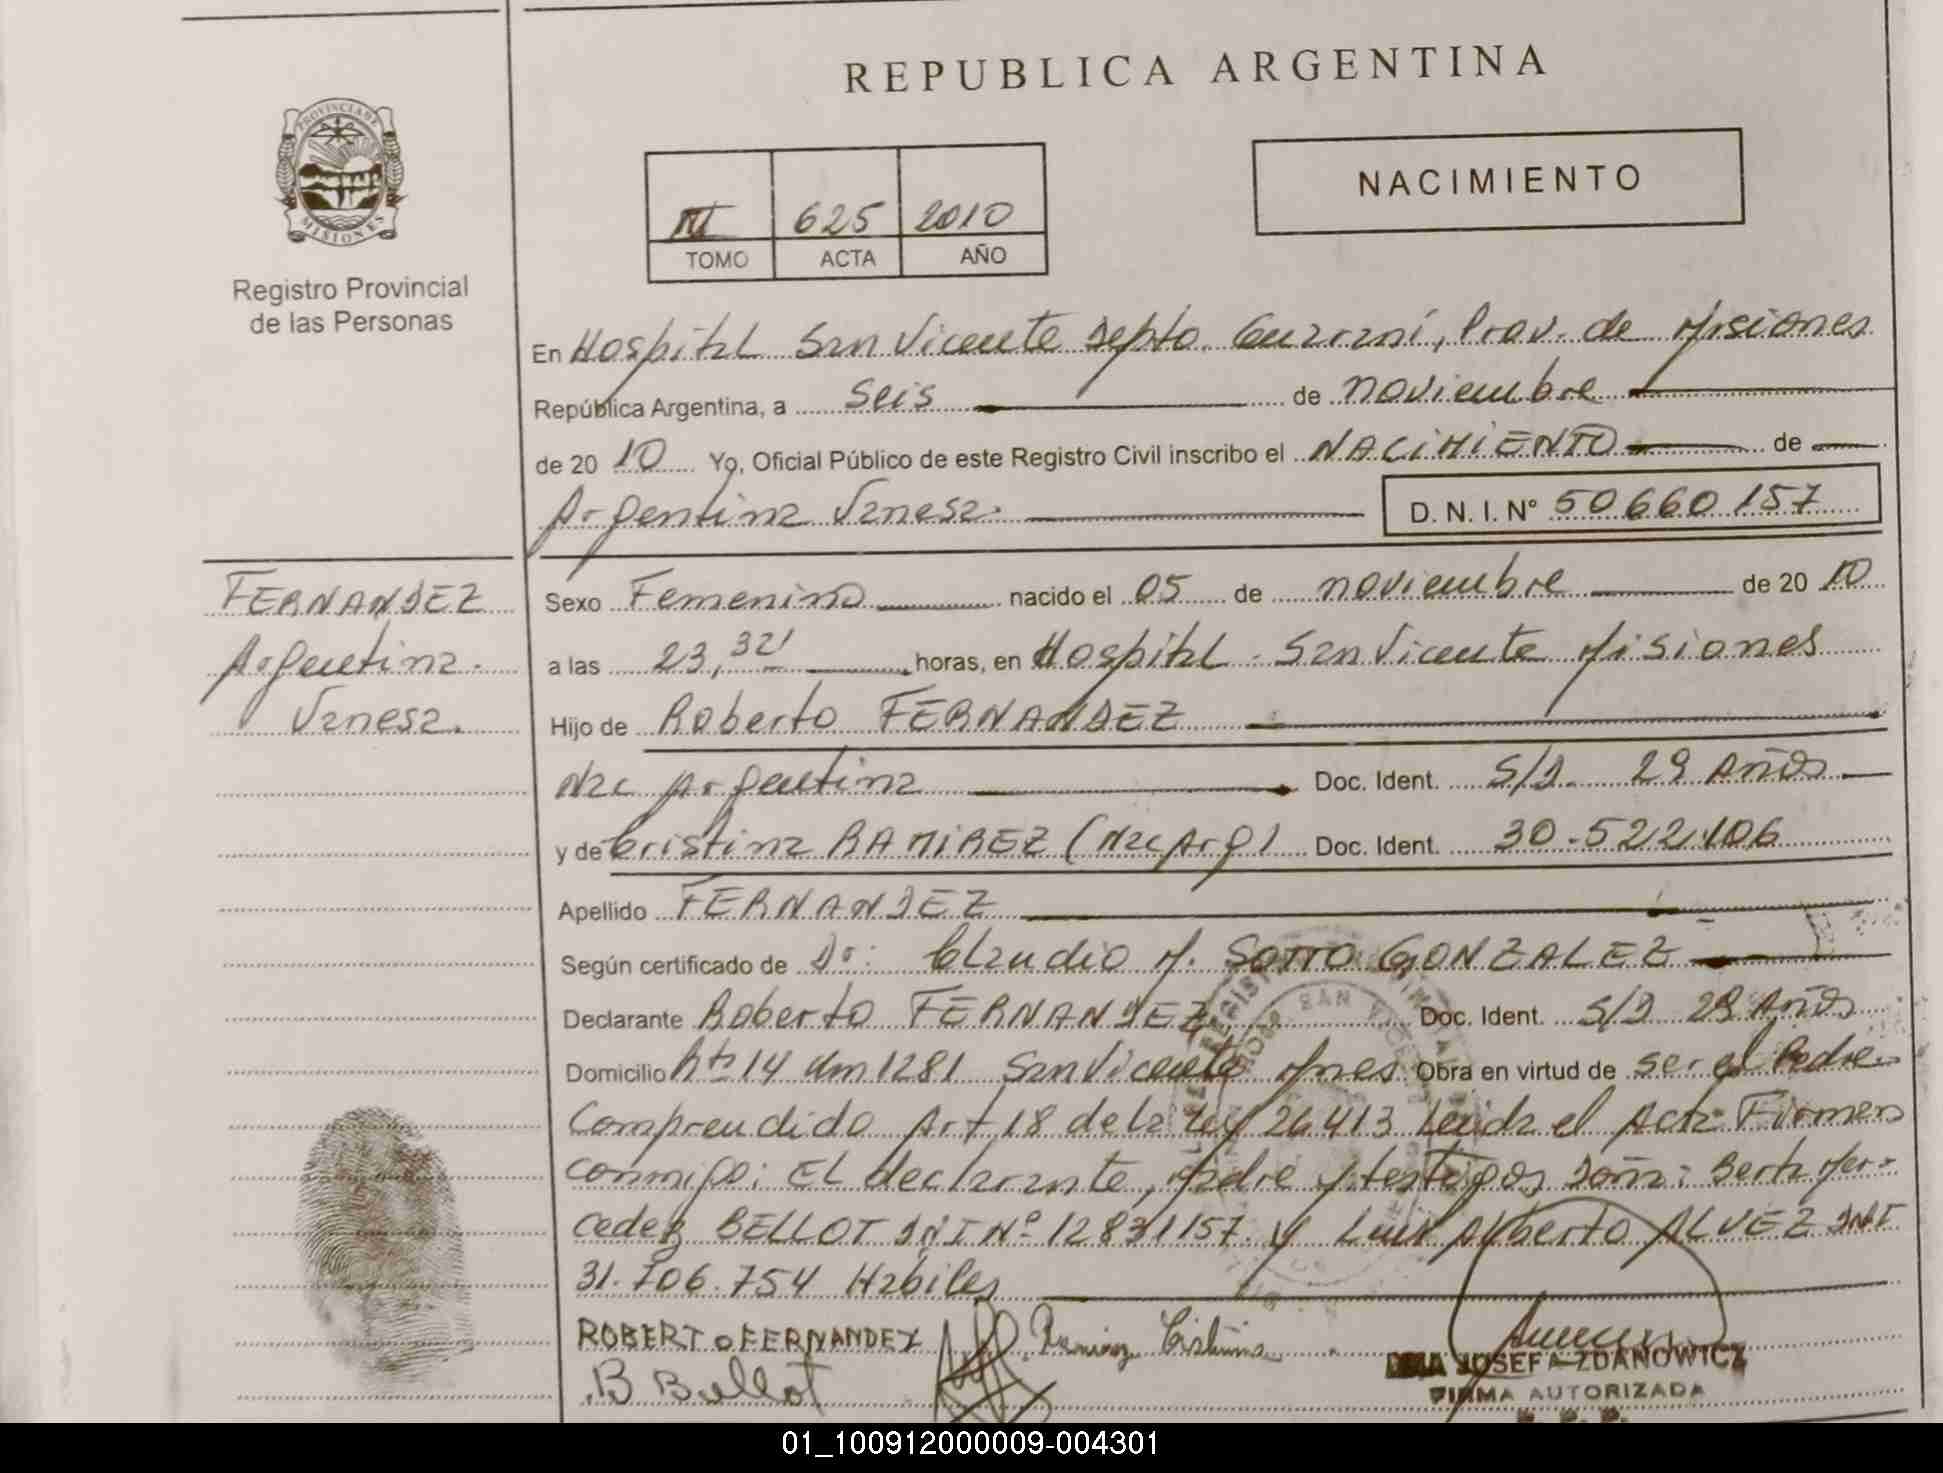 REPUBLICA ARGENTINA
PROVINCIA DE
MISIONES
Registro Provincial
de las Personas
III 625 2010
TOMO ACTA AÑO
NACIMIENTO
En Hospital San Vicente Depto. Guaraní, Prov. de Misiones
República Argentina, a seis de noviembre
de 20 10 Yo, Oficial Público de este Registro Civil inscribo el NACIMIENTO de
Argentina Vanesa. D. N. I. Nº 50660157
FERNANDEZ
Argentina.
Vanesa.
Sexo Femenino nacido el 05 de noviembre de 20 10
a las 23,32' horas, en Hospital - San Vicente Misiones
Hijo de Roberto FERNANDEZ
Nac Argentina Doc. Ident. S/D. 29 Años
y de Cristina RAMIREZ (Nac Arg) Doc. Ident. 30.522.106
Apellido FERNANDEZ
Según certificado de Dr: Claudio M. SOTTO GONZALEZ
Declarante Roberto FERNANDEZ Doc. Ident. S/D 29 Años
Domicilio Rta 14 Km 1281 San Vicente Mnes. Obra en virtud de ser el Padre.
Comprendido Art 18 de la Ley 26413 Leida el Acta Firman
conmigo: EL declarante, Madre y testigos Doña: Berta Mer-
cedez BELLOT DNI Nº 12831157. y Luis Alberto ALVEZ DNI
31.706.754 Habiles
ROBERTO FERNANDEZ Ramirez Cristina
B Bellot
JOSEFA ZDANOWICZ
FIRMA AUTORIZADA
R. P. P.
01_100912000009-004301